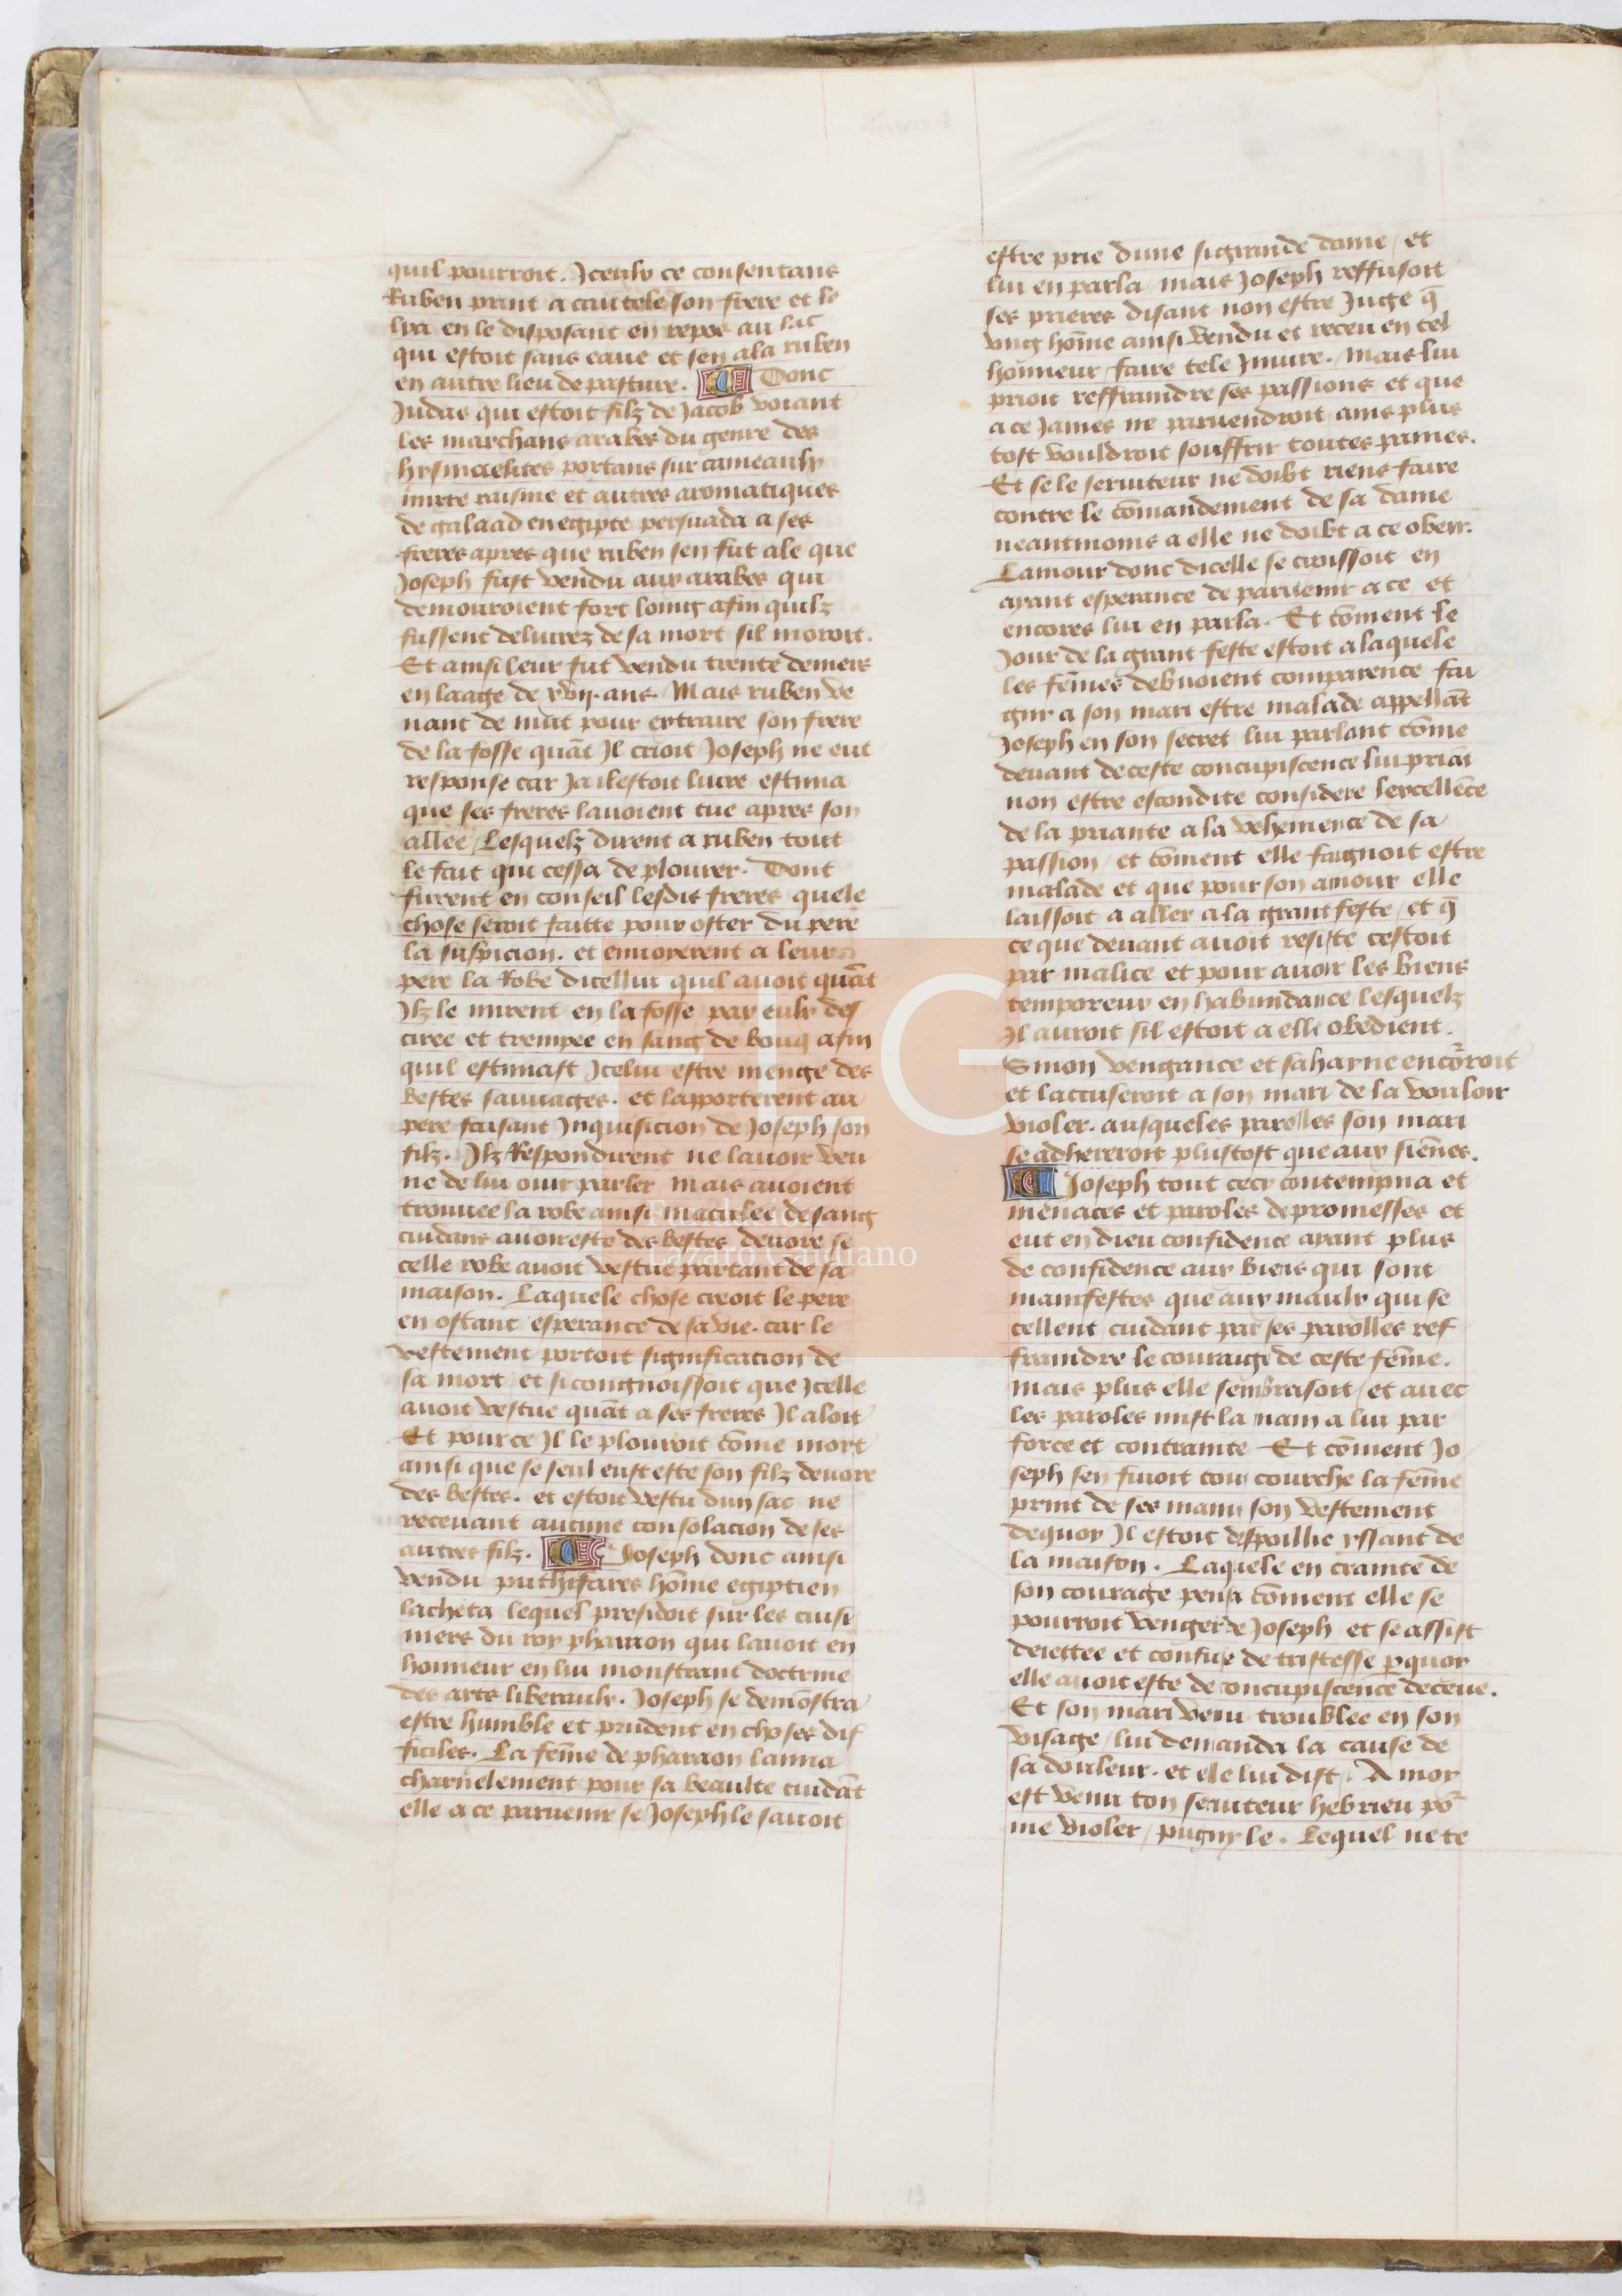 quil pourroit. Iceulx ce consentans
Ruben print a cautele son frere et le
lya en le disposant en repos au lac
qui estoit sans eaue et sen ala ruben
en autre lieu de pasture. Donc
Judas qui estoit filz de Jacob voiant
les marchans arabes du genre des
hysmaelites portans sur cameaulx
mirre raisine et autres aromatiques
de galaad en egipte persuada a ses
freres apres que ruben sen fut ale que
Joseph fust vendu aux arabes qui
demouroient fort loing afin quilz
fussent deliurez de sa mort sil moroit.
Et ainsi leur fut vendu trente deniers
en laage de xvij. ans. Mais ruben ve
nant de nuit pour extraire son frere
de la fosse quāt Il crioit Joseph ne eut
response car Ja il estoit liure estima
que ses freres lauoient tue apres son
allee, Lesquelz dirent a ruben tout
le fait qui cessa de plourer. Dont
furent en conseil lesdis freres quele
chose seroit faitte pour oster du pere
la suspicion. et enuoyerent a leur
pere la Robe dicellui quil auoit quāt
Ilz le mirent en la fosse par eulx des
ciree et trempee en sang de bouq afin
quil estimast Icelui estre menge des
bestes sauuages. et lapporterent au
pere faisant Inquisicion de Joseph son
filz. Ilz Respondirent ne lauoir veu
ne de lui ouir parler mais auoient
trouuee la robe ainsi maculee de sang
cuidans auoir este des bestes deuore se
celle robe auoit vestue partant de sa
maison. Laquele chose creoit le pere
en ostant esperance de sa vie. car le
vestement portoit signification de
sa mort et si congnoissoit que Icelle
auoit vestue quāt a ses freres Il aloit
Et pource Il le plouroit cōme mort
ainsi que se seul eust este son filz deuore
des bestes. et estoit vestu dun sac ne
receuant aucune consolacion de ses
autres filz. Joseph donc ainsi
vendu puthifares hōme egiptien
lacheta lequel presidoit sur les cuisi
niers du roy pharaon qui lauoit en
honneur en lui monstrant doctrine
des arts liberaulx. Joseph se demōstra
estre humble et prudent en choses dif
ficiles. La fēme de pharaon lama
charnelement pour sa beaulte cuidāt
elle a ce paruenir se Joseph le sauoit
estre prie dune si grande dame, et
lui en parla, mais Joseph reffusoit
ses prieres disant non estre Juge q̄
vng hōme ainsi vendu et receu en tel
honneur faire tele Iniure. Mais lui
prioit reffraindre ses passions et que
a ce James ne paruendroit ains plus
tost vouldroit souffrir toutes paines.
Et se le seruiteur ne doibt riens faire
contre le cōmandement de sa dame
neantmoins a elle ne doibt a ce obeir.
Lamour donc dicelle se croissoit en
ayant esperance de paruenir a ce et
encores lui en parla. Et cōment le
Jour de la grant feste estoit a laquele
les fēmes debuoient comparence fai
gnr a son mari estre malade appellāt
Joseph en son secret lui parlant cōme
deuant de ceste concupiscence lui priāt
non estre escondite considere lexcellēce
de la priante a la vehemence de sa
passion, et cōment elle faignoit estre
malade et que pour son amour elle
laissoit a aller a la grant feste, et q̄
ce que deuant auoit resiste cestoit
par malice et pour auoir les biens
temporeux en habundance lesquelz
Il auroit sil estoit a elle obedient.
Sinon vengance et sa hayne encōrroit
et laccuseroit a son mari de la vouloir
violer. ausqueles parolles son mari
se adhereroit plustost que aux siēnes.
Joseph tout cecy contempna et
menaces et paroles de promesses et
eut en dieu confidence ayant plus
de confidence aux biens qui sont
manifestes que aux maulx qui se
cellent cuidant par ses parolles ref
fraindre le couraige de ceste fēme.
Mais plus elle sembrasoit, et auec
les paroles mist la main a lui par
force et contrainte Et cōment Jo
seph sen fuioit tout courche la fēme
print de ses mains son vestement
dequoy Il estoit despoillie yssant de
la maison. Laquele en crainte de
son courage pensa cōment elle se
pourroit venger de Joseph et se assist
deiettee et confuse de tristesse pquoy
elle auoit este de concupiscence deceue.
Et son mari venu troublee en son
visage, lui demanda la cause de
sa douleur. et elle lui dist. A moy
est venu ton seruiteur hebrieu po᷑
me violer, pugny le. Lequel ne te